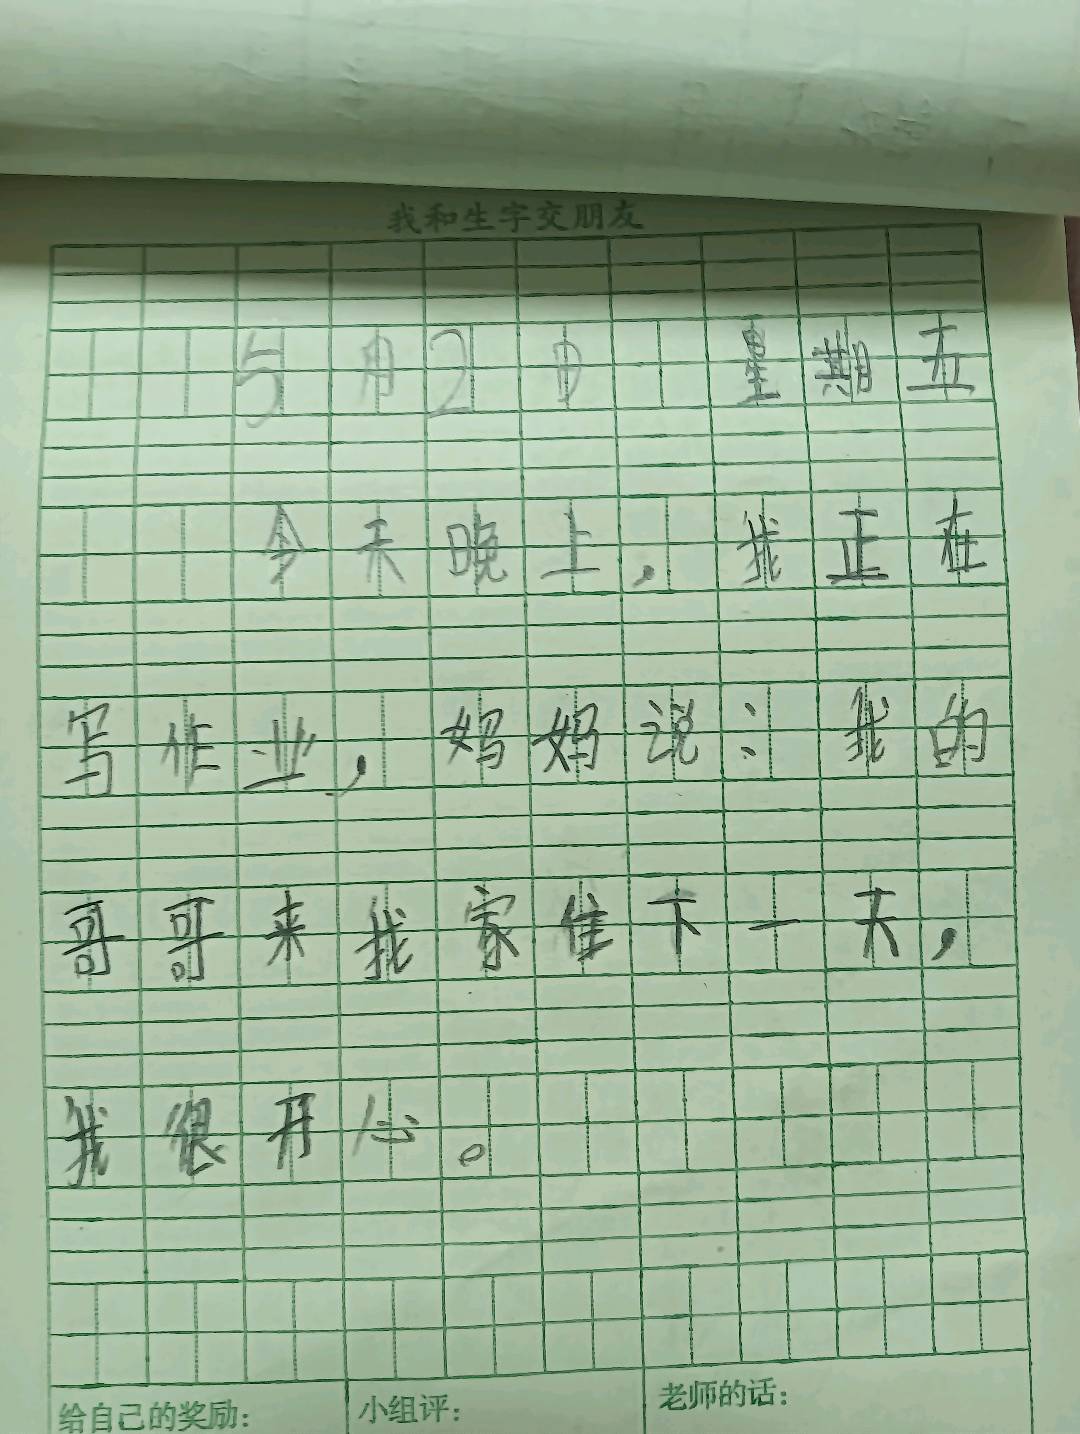 我和生字交朋友
5月2日 星期五
今天晚上，我正在
写作业，妈妈说：我的
哥哥来我家住下一天，
我很开心。
给自己的奖励：
小组评：
老师的话：